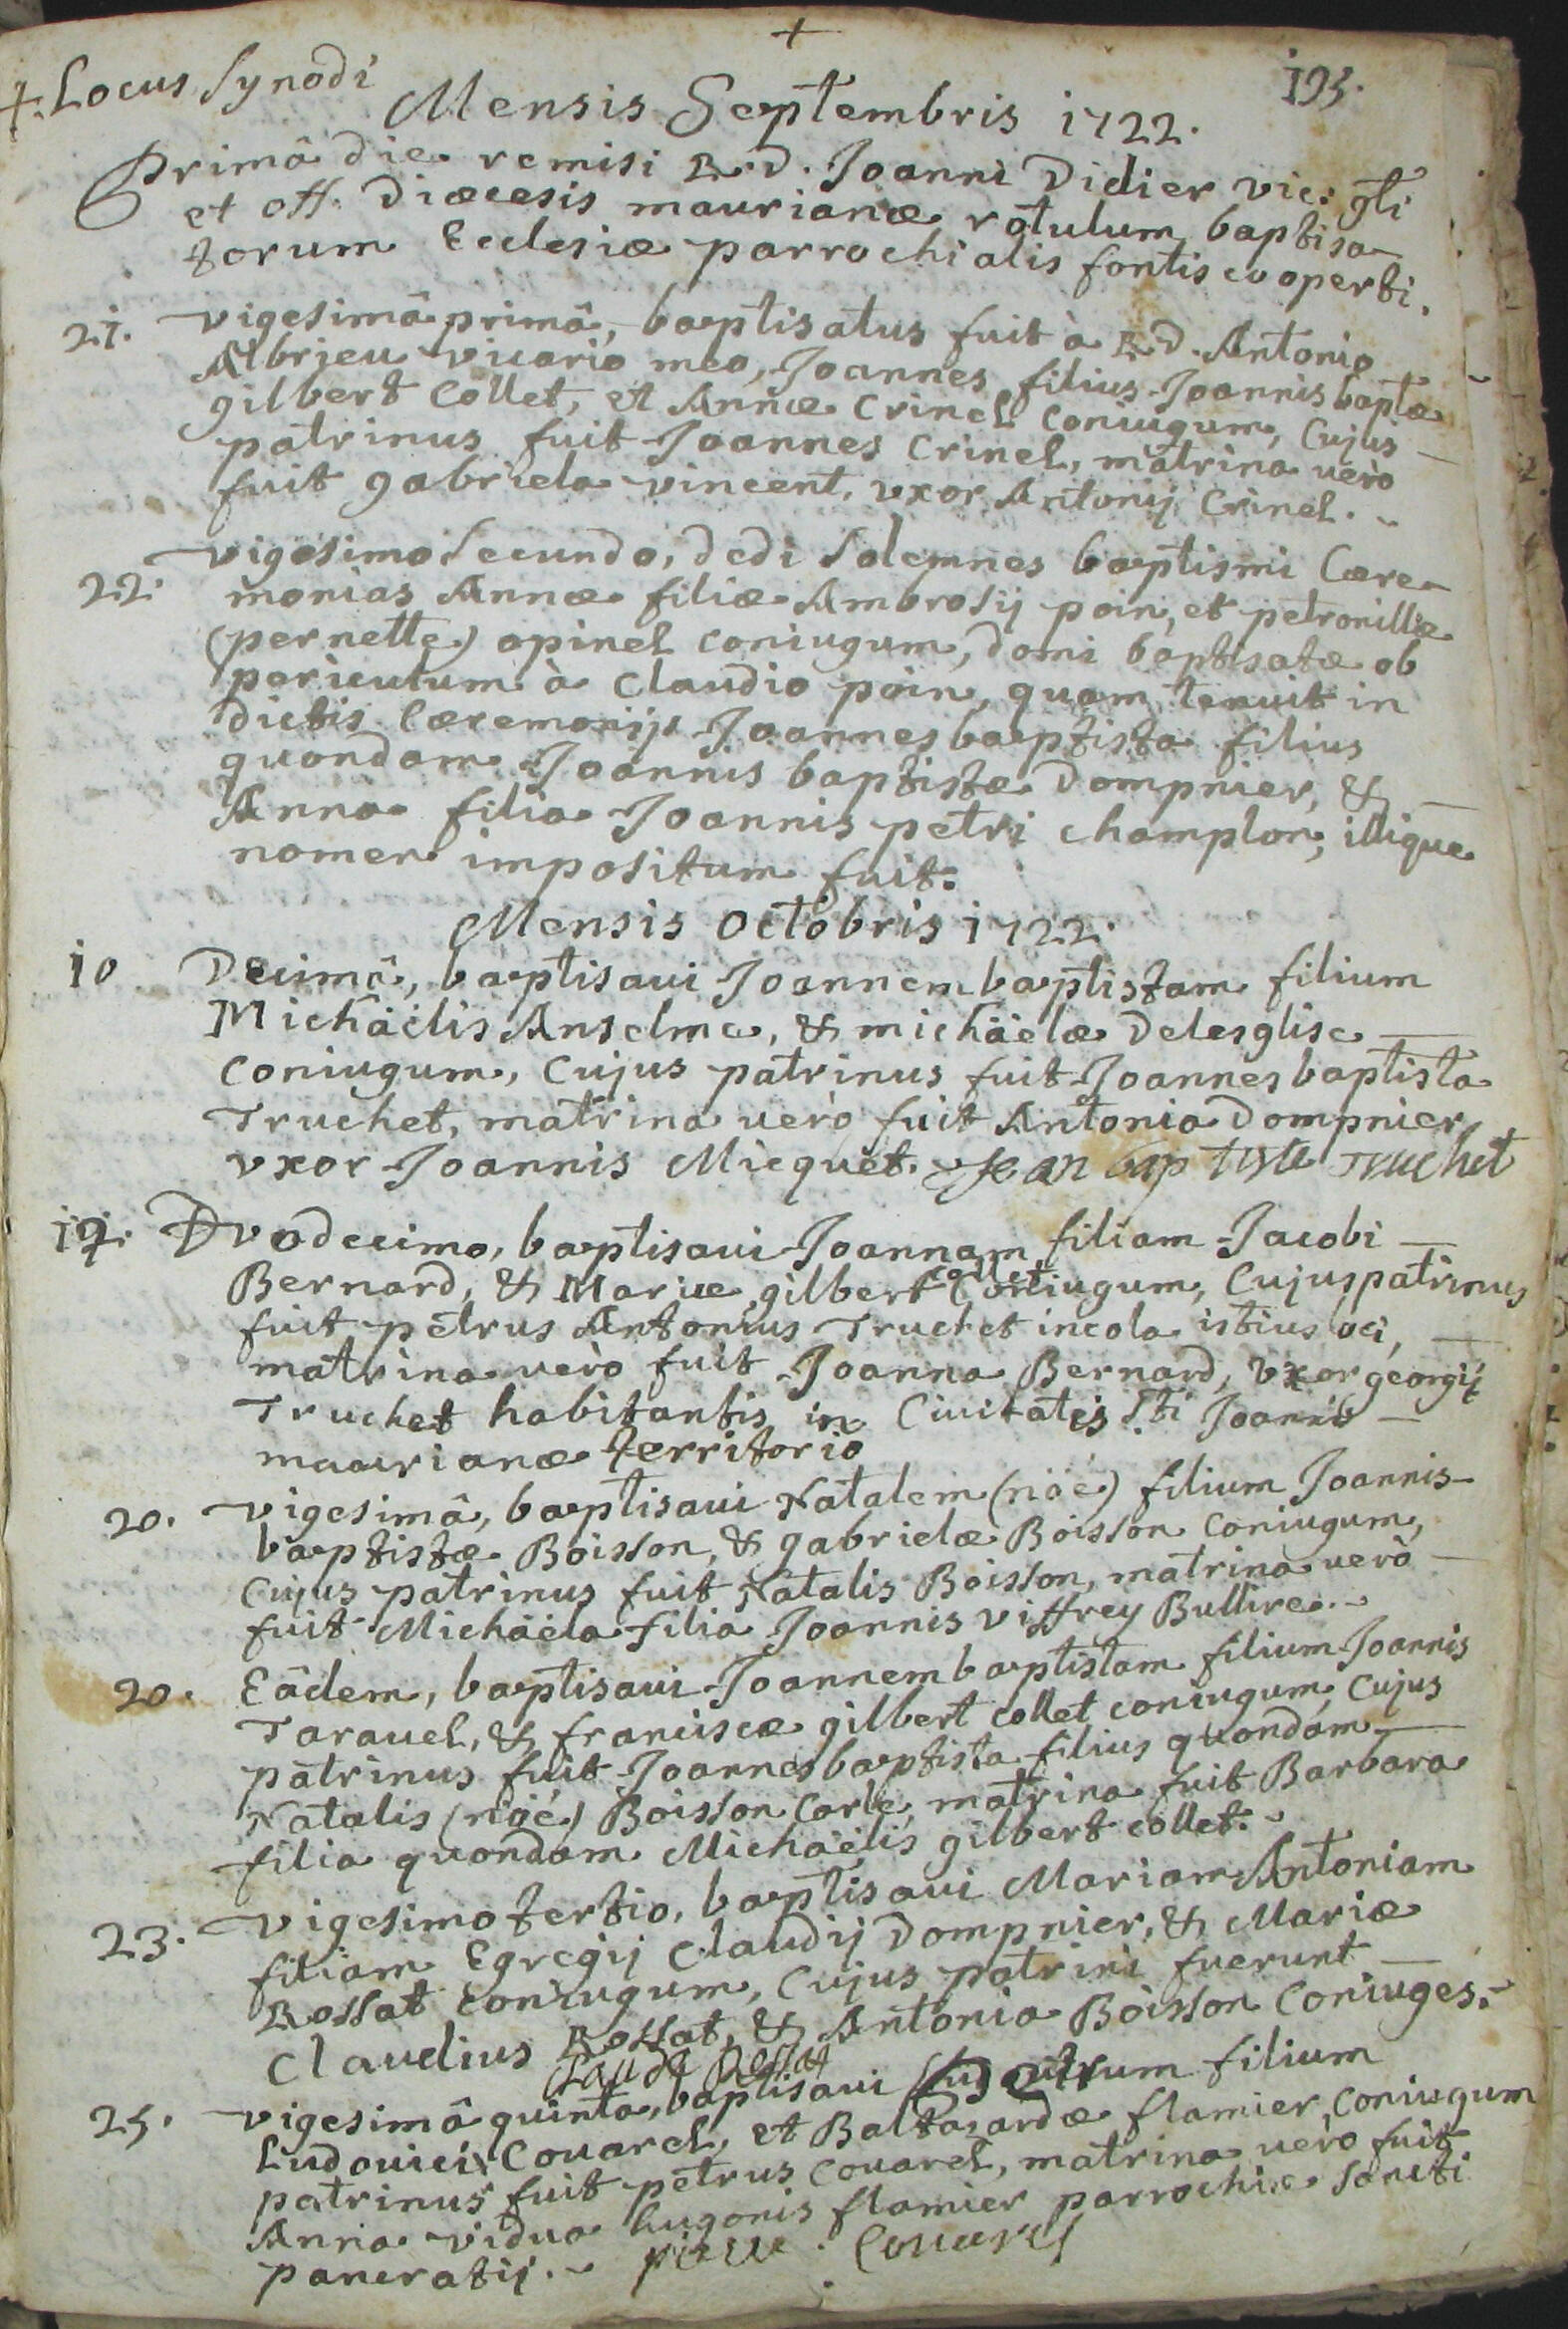 +
+. Locus Synodi
193.
Mensis Septembris 1722.
Primâ die remisi R. D. Joanni Didier vic: gli
et off. Diœcesis maurianæ rotulum baptisa-
torum Ecclesiæ parrochialis fontis cooperti.
21. vigesimâ primâ, baptisatus fuit à R. D. Antonio
Albrieu vicario meo, Joannes filius Joannis baptæ
gilbert Collet, et Annæ Crinel coniugum, Cujus
patrinus fuit Joannes Crinel, matrina verò
fuit gabriela vincent, vxor Antonij Crinel.
22. vigesimo secundo, dedi Solemnes baptismi Cære-
monias Annæ filiæ Ambrosij poin, et petronillæ
(pernette) opinel coniugum, domi baptisatæ ob
periculum à Claudio poin, quam tenuit in
dictis Cæremonijs Joannes baptista filius
quondam Joannis baptistæ Dompnier, &
Anna filia Joannis petri champlon, illique
nomen impositum fuit.
Mensis octobris 1722.
10 Decimâ, baptisaui Joannem baptistam filium
Michäelis Anselme, & michäelæ Delesglise
Coniugum, Cujus patrinus fuit Joannes baptista
Truchet, matrina verò fuit Antonia Dompnier
vxor Joannis Micquet. Jean baptiste Truchet
12. Dvodecimo, baptisaui Joannam filiam Jacobi
Bernard, & Mariæ gilbert collet Coniugum, Cujus patrinus
fuit petrus Antonius Truchet incola istius loci,
matrina verò fuit Joanna Bernard, vxor georgij
Truchet habitantis in Ciuitatis Sti Joannis
maurianæ territorio
20. vigesimâ, baptisaui Natalem (nöé) filium Joannis
baptistæ Boisson, & gabrielæ Boisson Coniugum,
Cujus patrinus fuit Natalis Boisson, matrina verò
fuit Michäela filia Joannis viffrey Bullire.
20. Eâdem, baptisaui Joannem baptistam filium Joannis
Tarauel, & franciscæ gilbert collet coniugum, Cujus
patrinus fuit Joannes baptista filius quondam
Natalis (nöé) Boisson Carle, matrina fuit Barbara
filia quondam Michäelis gilbert collet.
23. vigesimo tertio, baptisaui Mariam Antoniam
filiam Egregij Claudij Dompnier, & Mariæ
Rossat Coniugum, Cujus patrini fuerunt
Claudius Rossat, & Antonia Boisson Coniuges.
Claude Rossat
25. vigesimâ quinta, baptisaui petrum filium
Ludouici Couarel, et Baltazardæ flamier, coniugum
patrinus fuit petrus Couarel, matrina verò fuit
Anna vidua hugonis flamier parrochiæ Sancti
pancratij. piere Couarel